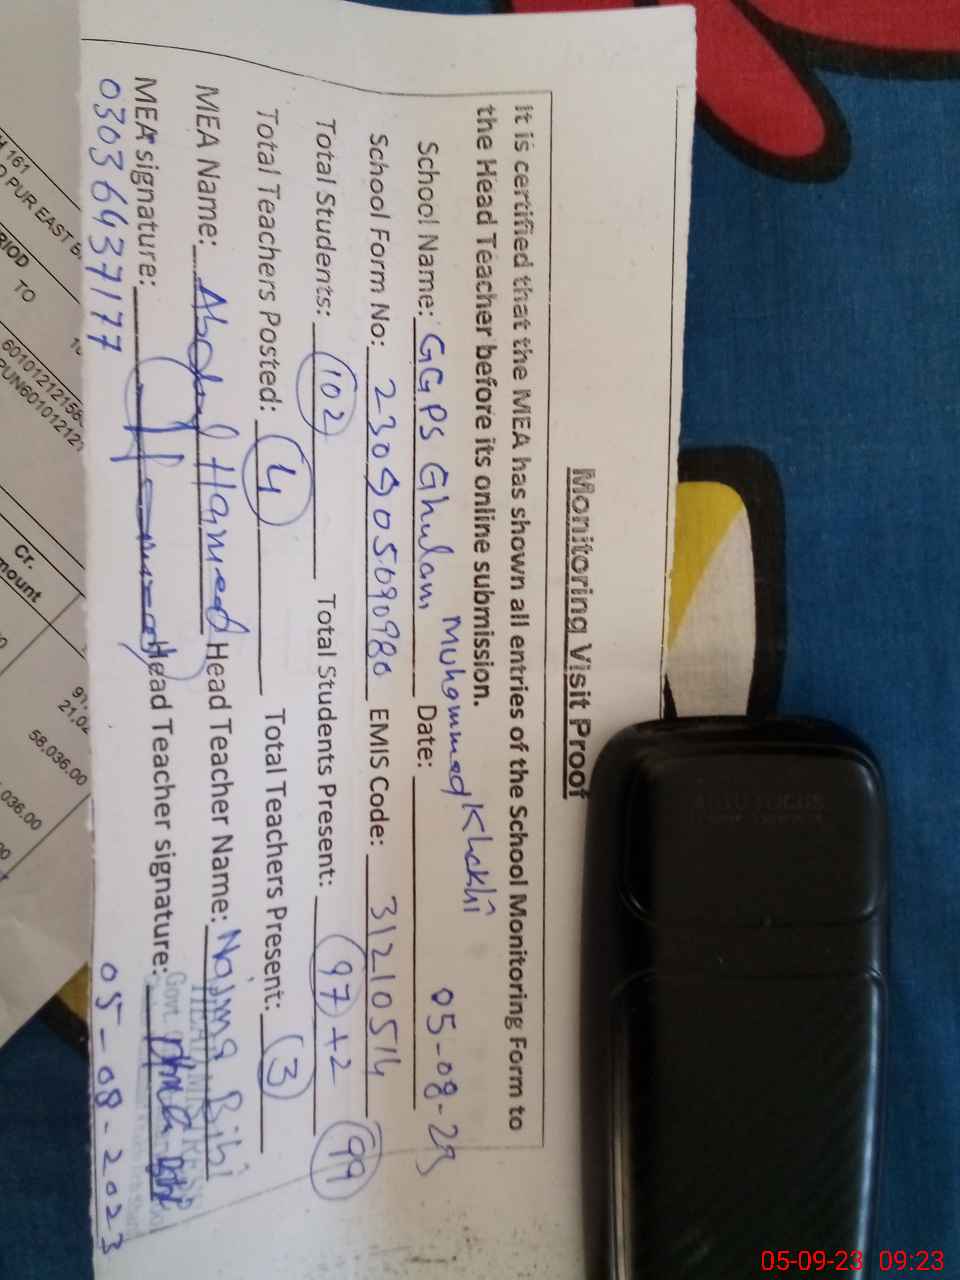 Monitoring Visit Proof
It is certified that the MEA has shown all entries of the School Monitoring Form to
the Head Teacher before its online submission.
School Name: GGPS Ghulam Muhammad Khakhi Date: 05-08-23
School Form No: 230905090980 EMIS Code: 31210514
Total Students: 102 Total Students Present: 97+2 99
Total Teachers Posted: 4 Total Teachers Present: 3
MEA Name: Abdul Hameed Head Teacher Name: Najma Bibi
MEA signature: Head Teacher signature:
03036437177 05-08-2023
Govt.
161
PUR EAST
RIOD TO
Cr.
mount
21,02
58,036.00
036.00
AUTO FOCUS
05-09-23 09:23